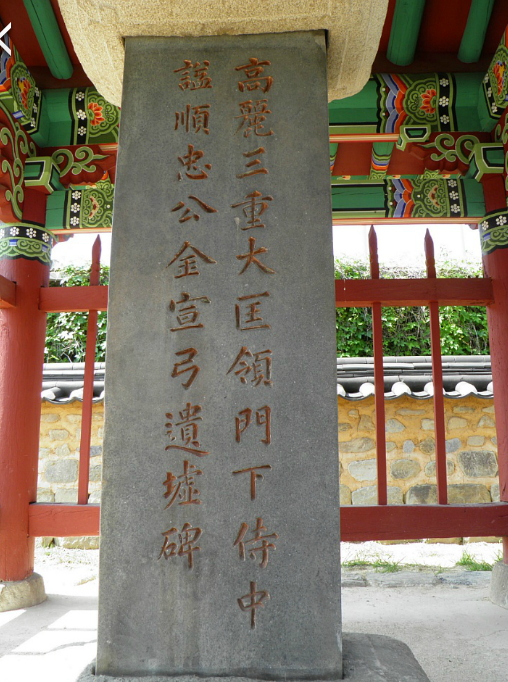 高麗三重大匡領門下侍中
諡順忠公金宣弓遺墟碑